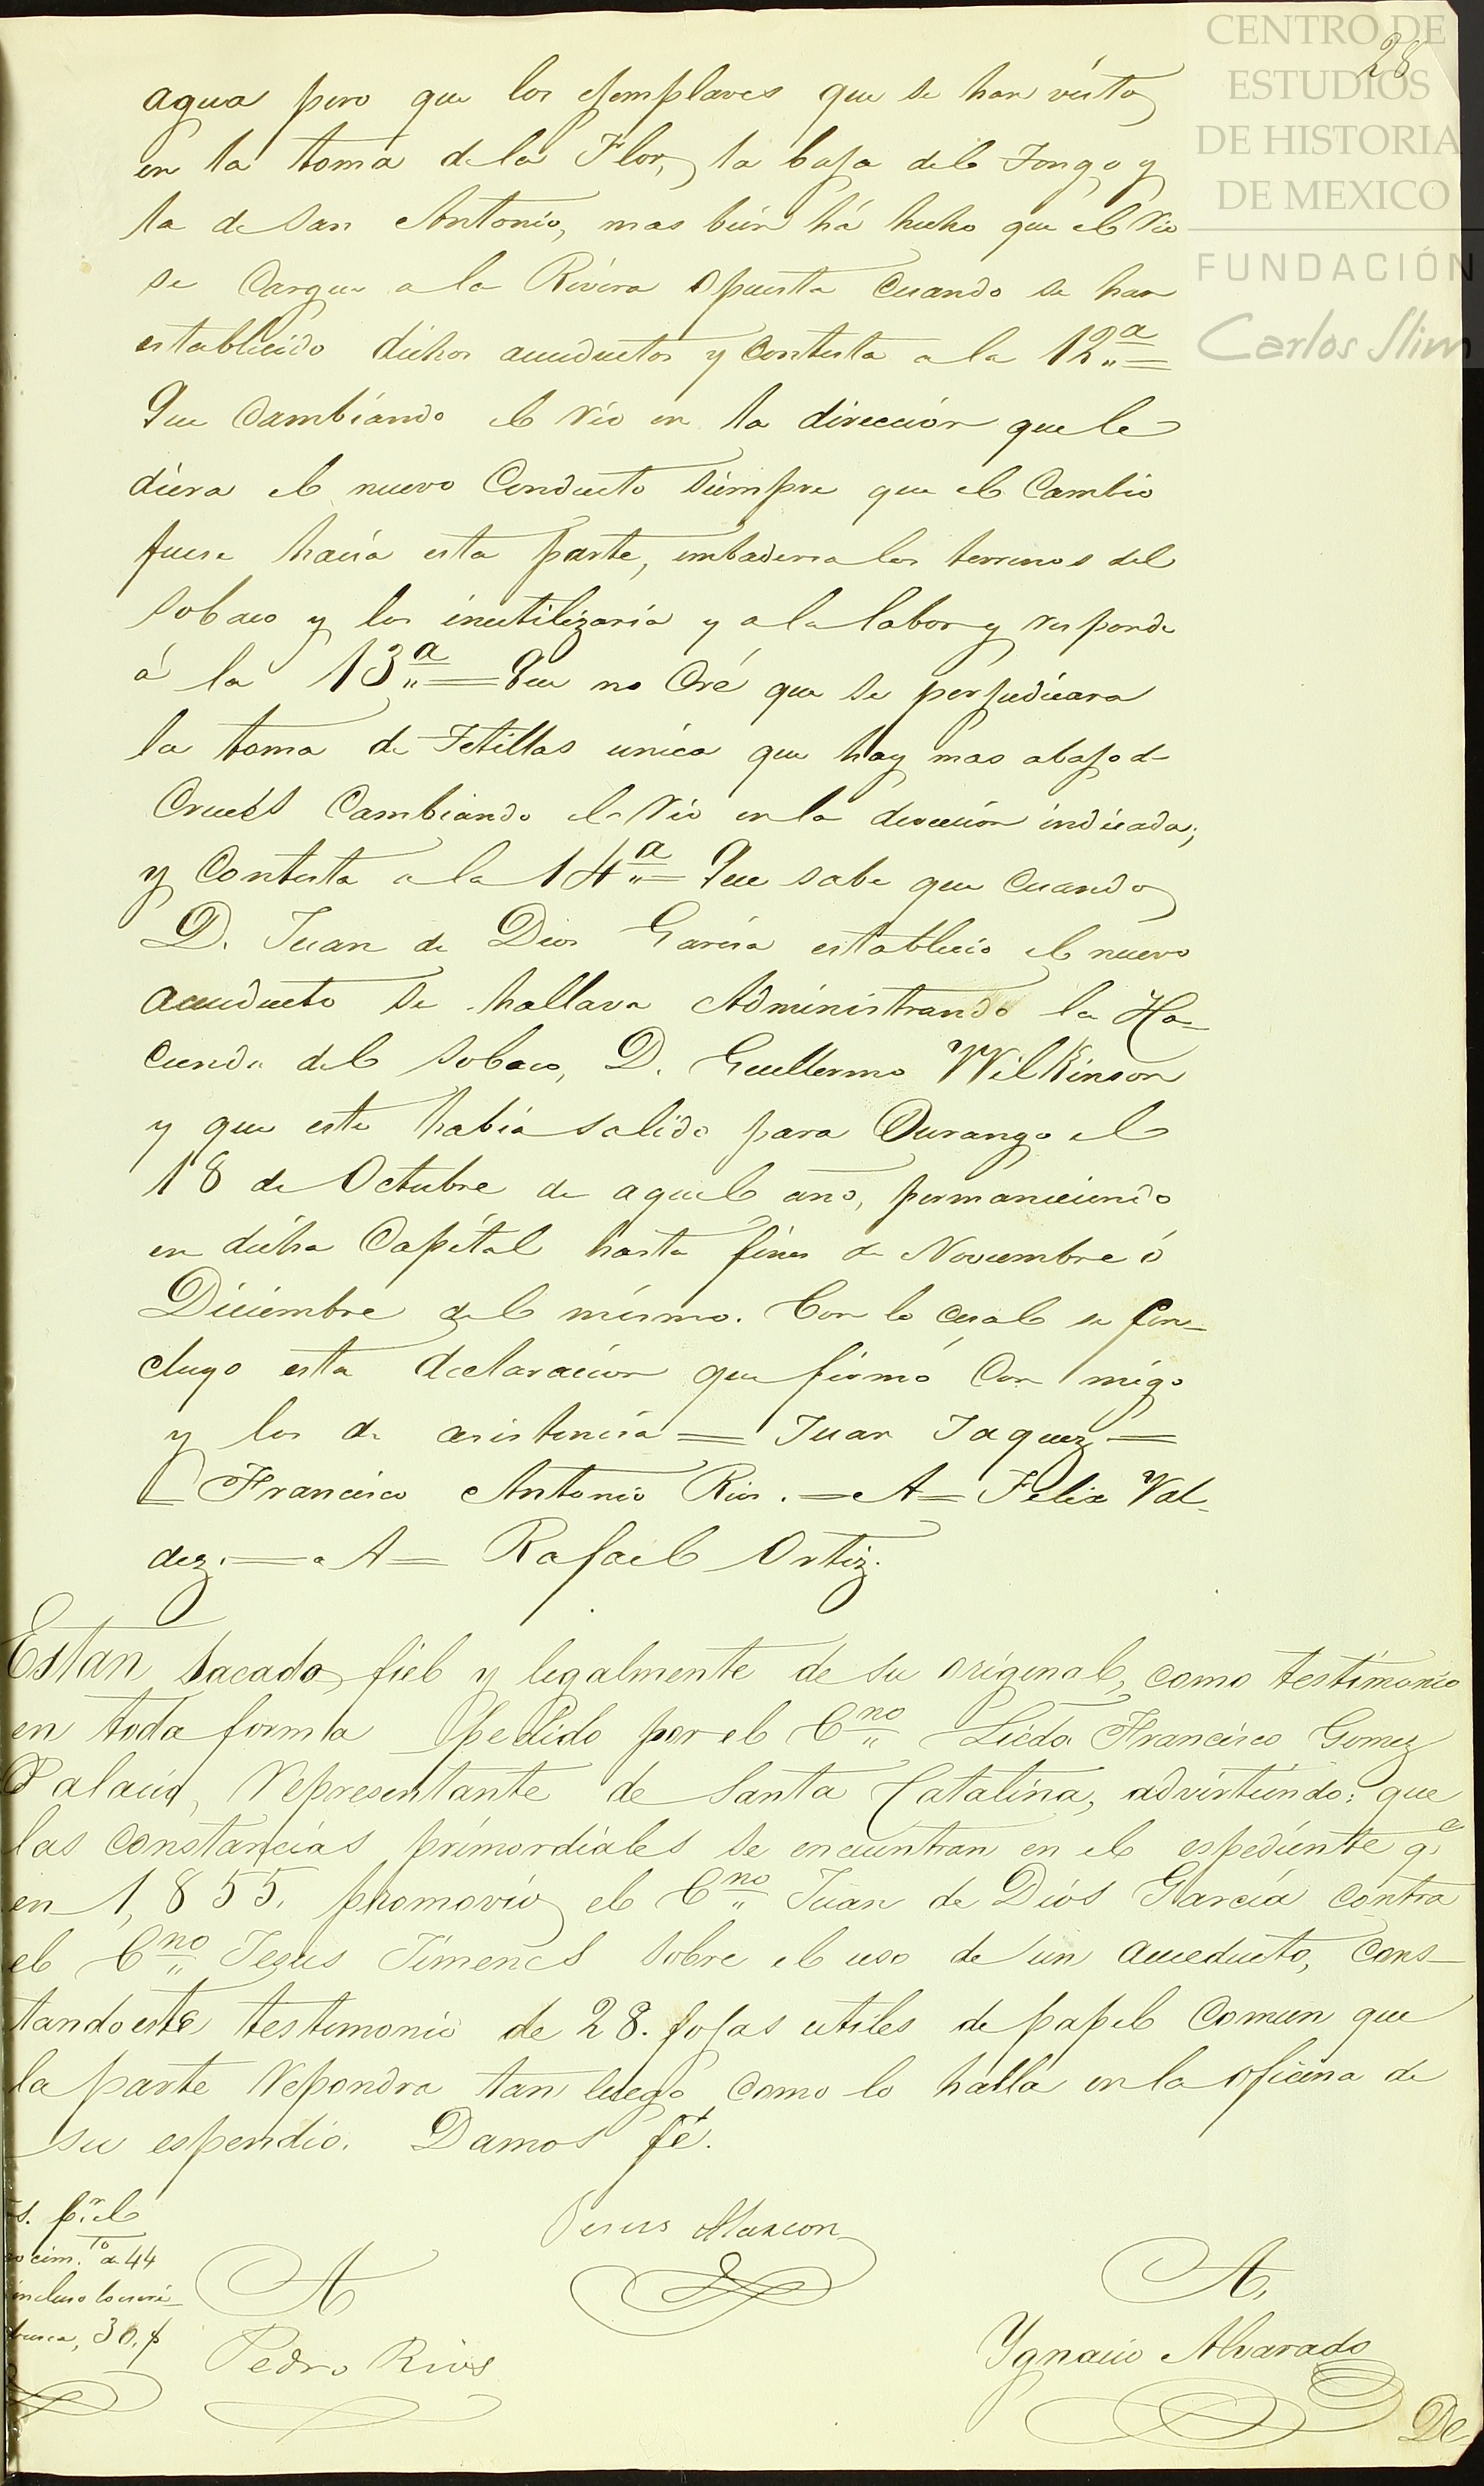 28
CENTRO DE
ESTUDIOS
DE HISTORIA
DE MEXICO
FUNDACIÓN
Carlos Slim
agua pero que los ejemplares que se han visto
en la toma de la Flor, la baja del Tongo y
la de San Antonio, mas bien há hecho que el rio
se cargue a la Rivera opuesta cuando se han
establecido dichos acueductos y contesta a la 12.ª=
Que cambiando el rio en la dirección que le
diera el nuevo Conducto siempre que el Cambio
fuese hacia esta parte, imbadería los terrenos del
Sobaco y los inutilizaría y a la labor y responde
á la 13.ª= Que no Cré que se perjudicara
la toma de Fetillas unica que hay mas abajo d
Cruces Cambiando el Rio en la dirección indicada;
y Contesta a la 14.ª= Que sabe que cuando
D. Juan de Dios García establecio el nuevo
acueducto se hallava Administrando la Ha-
cienda del Sobaco, D. Guillermo Wilkinson
y que este había salido para Durango el
18 de Octubre de aquel año, permaneciendo
en dicha Capital hasta fines de Noviembre ó
Diciembre del mismo. Con lo cual se con-
cluyo esta declaracion que firmó con migo
y los de asistencia = Juan Jaquez =
= Francisco Antonio Rios. = A = Felix Val-
dez. = A = Rafael Ortiz.
Están sacado fiel y legalmente de su original, como testimonio
en toda forma pedido por el C.no Licdo Francisco Gomez
Palacio, Representante de Santa Catalina, advirtiendo: que
las constancias primordiales se encuentran en el espediente q.e
en 1,855. promovio el C.no Juan de Dios García contra
el C.no Jesus Jimenes sobre el uso de un acueducto, cons-
tando este testimonio de 28. fojas utiles de papel comun que
la parte repondra tan luego como lo halla en la oficina de
su espendio. Damos fé.
s. p.r el
cim.to a 44
incluso
busca, 30.$
Jesus Alarcon
A
Pedro Rios
A.
Ygnacio Alvarado
De